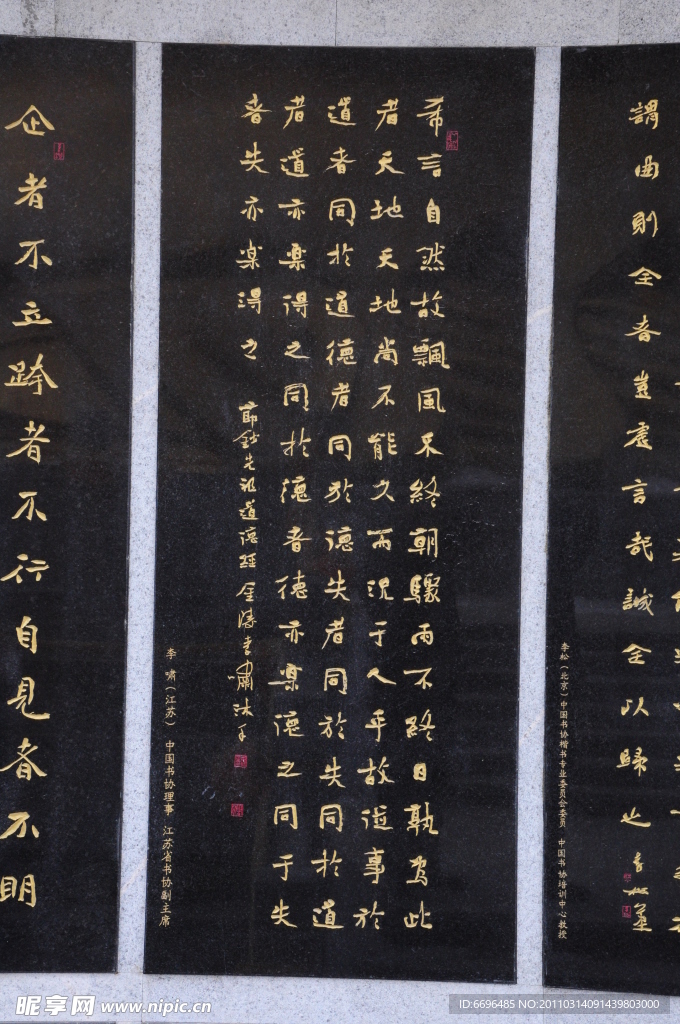 謂曲則全者豈虛言哉誠全以歸之 李松墨
李松（北京）中国书协楷书专业委员会委员 中国书协培训中心教授
希言自然故飄風不終朝驟雨不終日孰為此
者天地天地尚不能久而況于人乎故從事於
道者同於道德者同於德失者同於失同於道
者道亦楽得之同於德者德亦楽德之同于失
者失亦楽得之 節鈔先祖道德經 金陵李嘯沐手
李 啸（江苏） 中国书协理事 江苏省书协副主席
企者不立跨者不行自見者不明
昵享网 www.nipic.cn
ID:6696485 NO:20110314091439803000